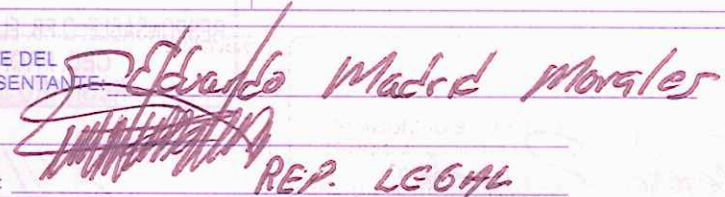 E DEL
SENTANTE: Eduardo Madrid Morales
REP. LEGAL